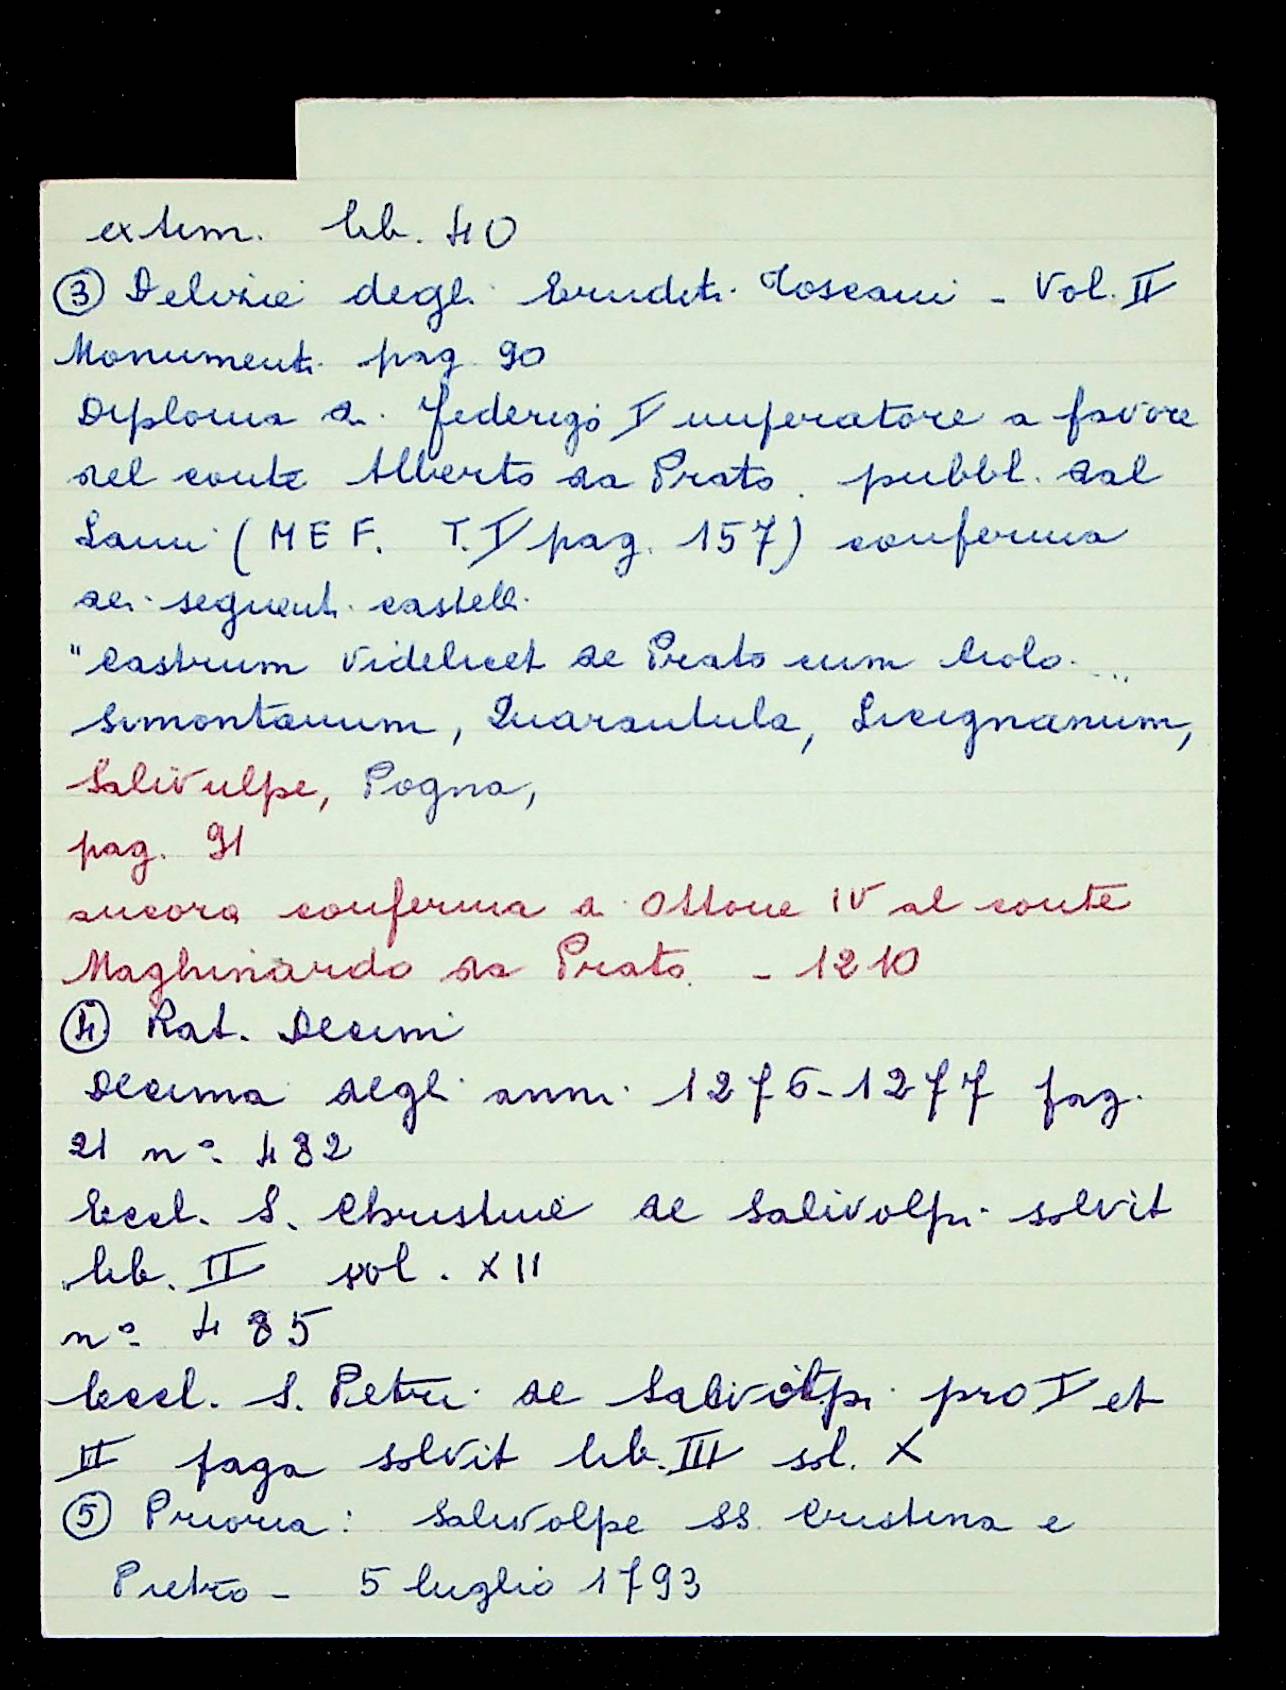 extim. lib. 40
③ Delizie degli Eruditi Toscani - Vol. II
Monumenti pag. 90
Diploma di Federigo I imperatore a favore
del conte Alberto da Prato. pubbl. dal
Lami (M E F. T. I pag. 157) conferma
dei seguenti castelli
"Castrum videlicet de Prato cum Molo...
Simontanum, Quarantula, Licignanum,
Salivulpe, Pogna,
pag. 91
ancora conferma di Ottone IV al conte
Maghinardo da Prato. - 1210
④ Rat. Decim
Decima degli anni 1276-1277 pag.
21 n° 482
Eccl. S. Christine de Salivolpi solvit
lib. II sol. XII
n° 485
Eccl. S. Petri de Salivolpi pro I et
II paga solvit lib. III sol. X
⑤ Prioria: Salivolpe SS. Cristina e
Pietro - 5 luglio 1793